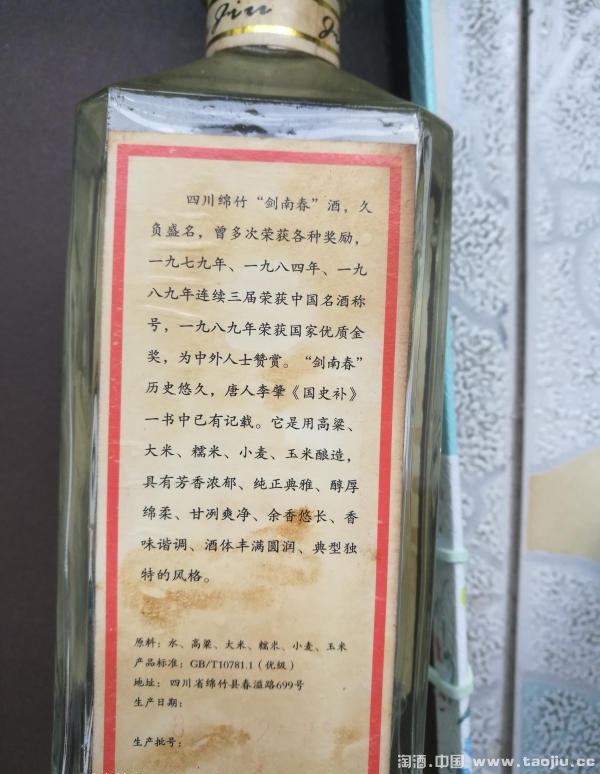 Jiu
四川绵竹“剑南春”酒，久
负盛名，曾多次荣获各种奖励，
一九七九年、一九八四年、一九
八九年连续三届荣获中国名酒称
号，一九八九年荣获国家优质金
奖，为中外人士赞赏。“剑南春”
历史悠久，唐人李肇《国史补》
一书中已有记载。它是用高粱、
大米、糯米、小麦、玉米酿造，
具有芳香浓郁、纯正典雅、醇厚
绵柔、甘冽爽净、余香悠长、香
味谐调、酒体丰满圆润、典型独
特的风格。
原料：水、高粱、大米、糯米、小麦、玉米
产品标准：GB/T10781.1（优级）
地址：四川省绵竹县春溢路699号
生产日期：
生产批号：
淘酒.中国 www.taojiu.cc